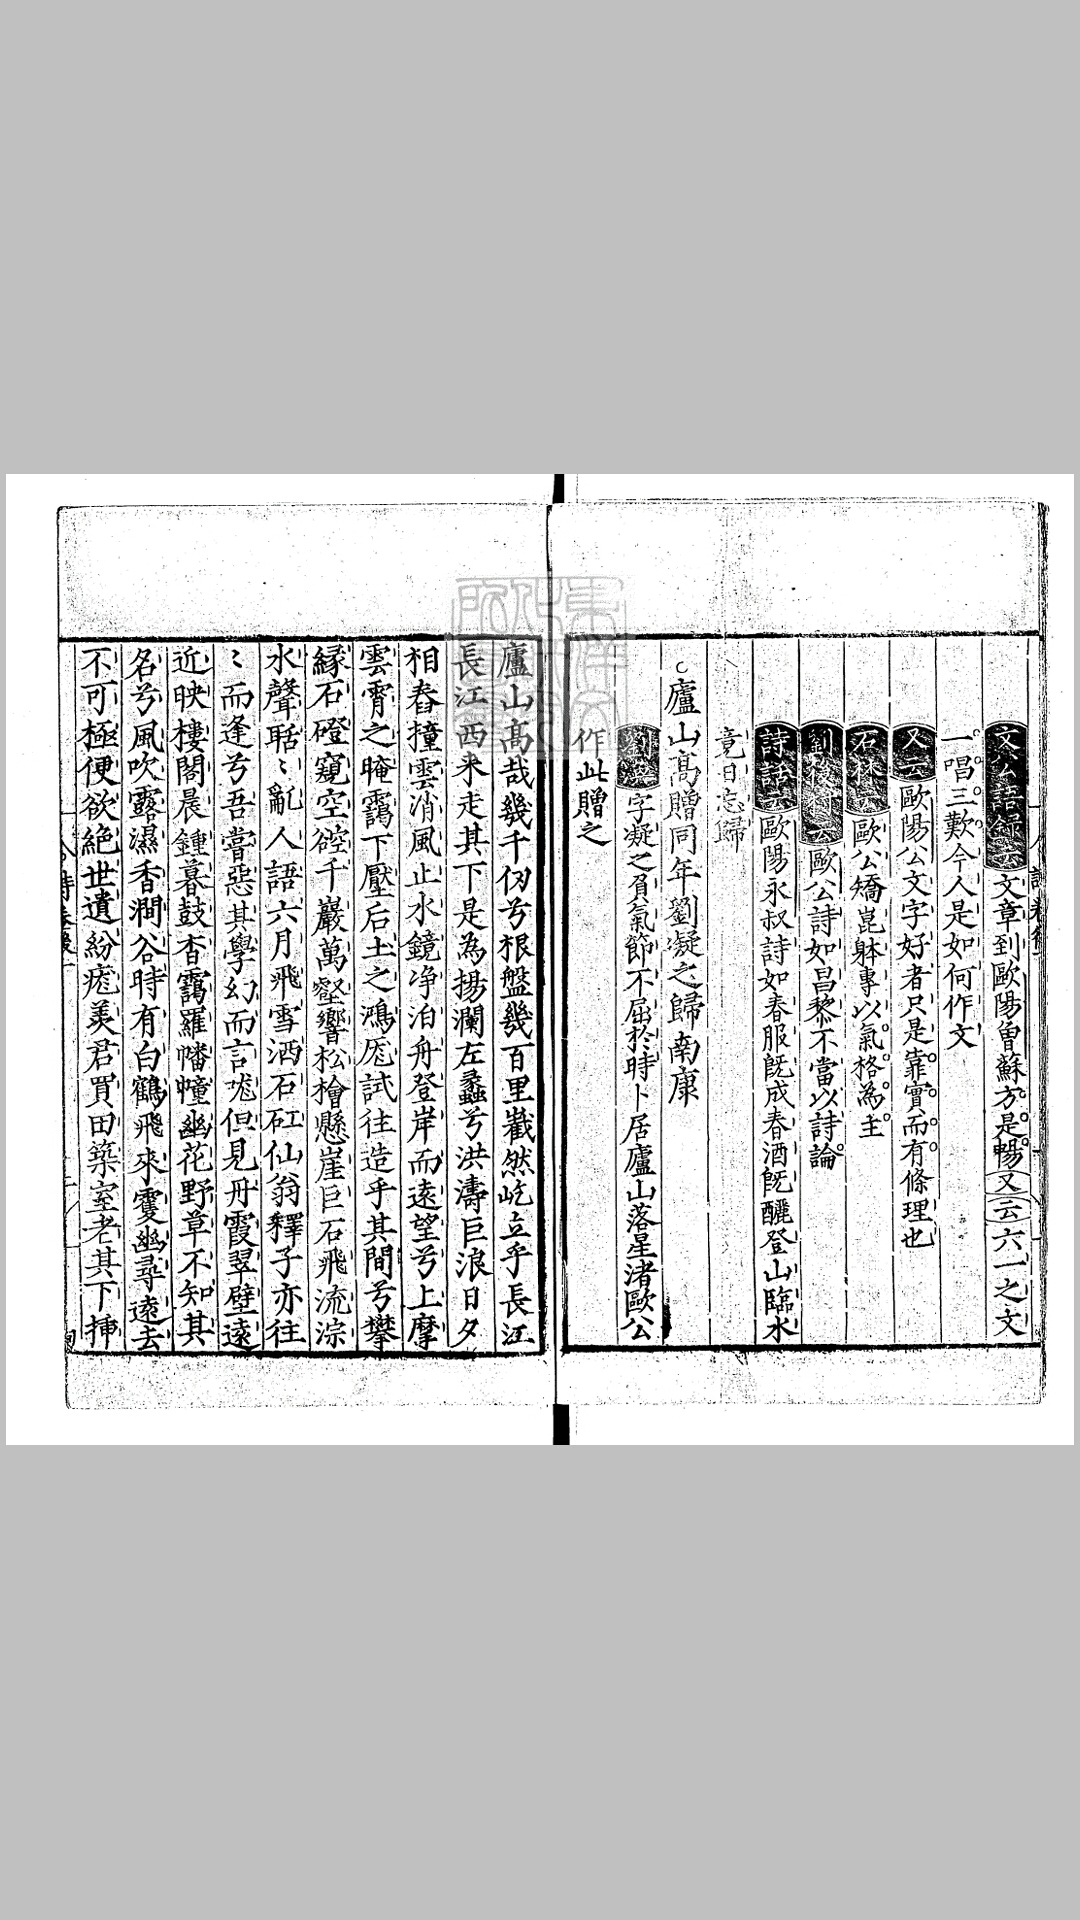 文公語録云文章到歐陽曽蘇方是暢又云六一之文
一唱三歎今人是如何作文
又云歐陽公文字好者只是靠實而有條理也
石林云歐公矯崑躰專以氣格為主
劉後村云歐公詩如昌黎不當以詩論
詩話云歐陽永叔詩如春服既成春酒既釃登山臨水
竟日忘歸
廬山高贈同年劉凝之歸南康
劉渙字凝之負氣節不屈於時卜居廬山落星渚歐公
作此贈之
廬山髙哉幾千仞兮根盤幾百里巀然屹立乎長江
長江西來走其下是為揚瀾左蠡兮洪濤巨浪日夕
相舂撞雲消風止水鏡净泊舟登岸而遠望兮上摩
雲霄之晻靄下壓后土之鴻厖試往造乎其間兮攀
緣石磴窺空谾千巖萬壑響松檜懸崖巨石飛流淙
水聲聒〻亂人語六月飛雪洒石矼仙翁釋子亦往
〻而逢兮吾嘗惡其學幻而言哤但見丹霞翠壁遠
近映樓閣晨鍾暮鼓杳靄羅幡幢幽花野草不知其
名兮風吹露濕香澗谷時有白鶴飛來雙幽尋遠去
不可極便欲絶世遺紛痝羡君買田築室老其下挿